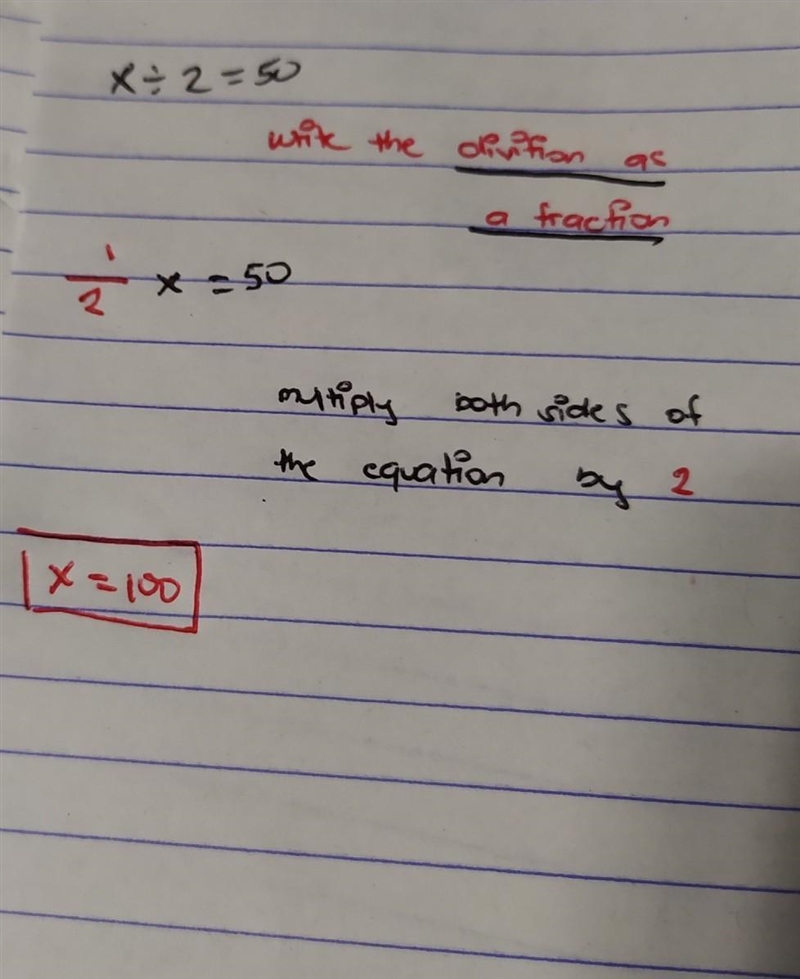 x ÷ 2 = 50
write the divition as
a fraction
1/2 x = 50
multiply both sides of
the equation by 2
x = 100